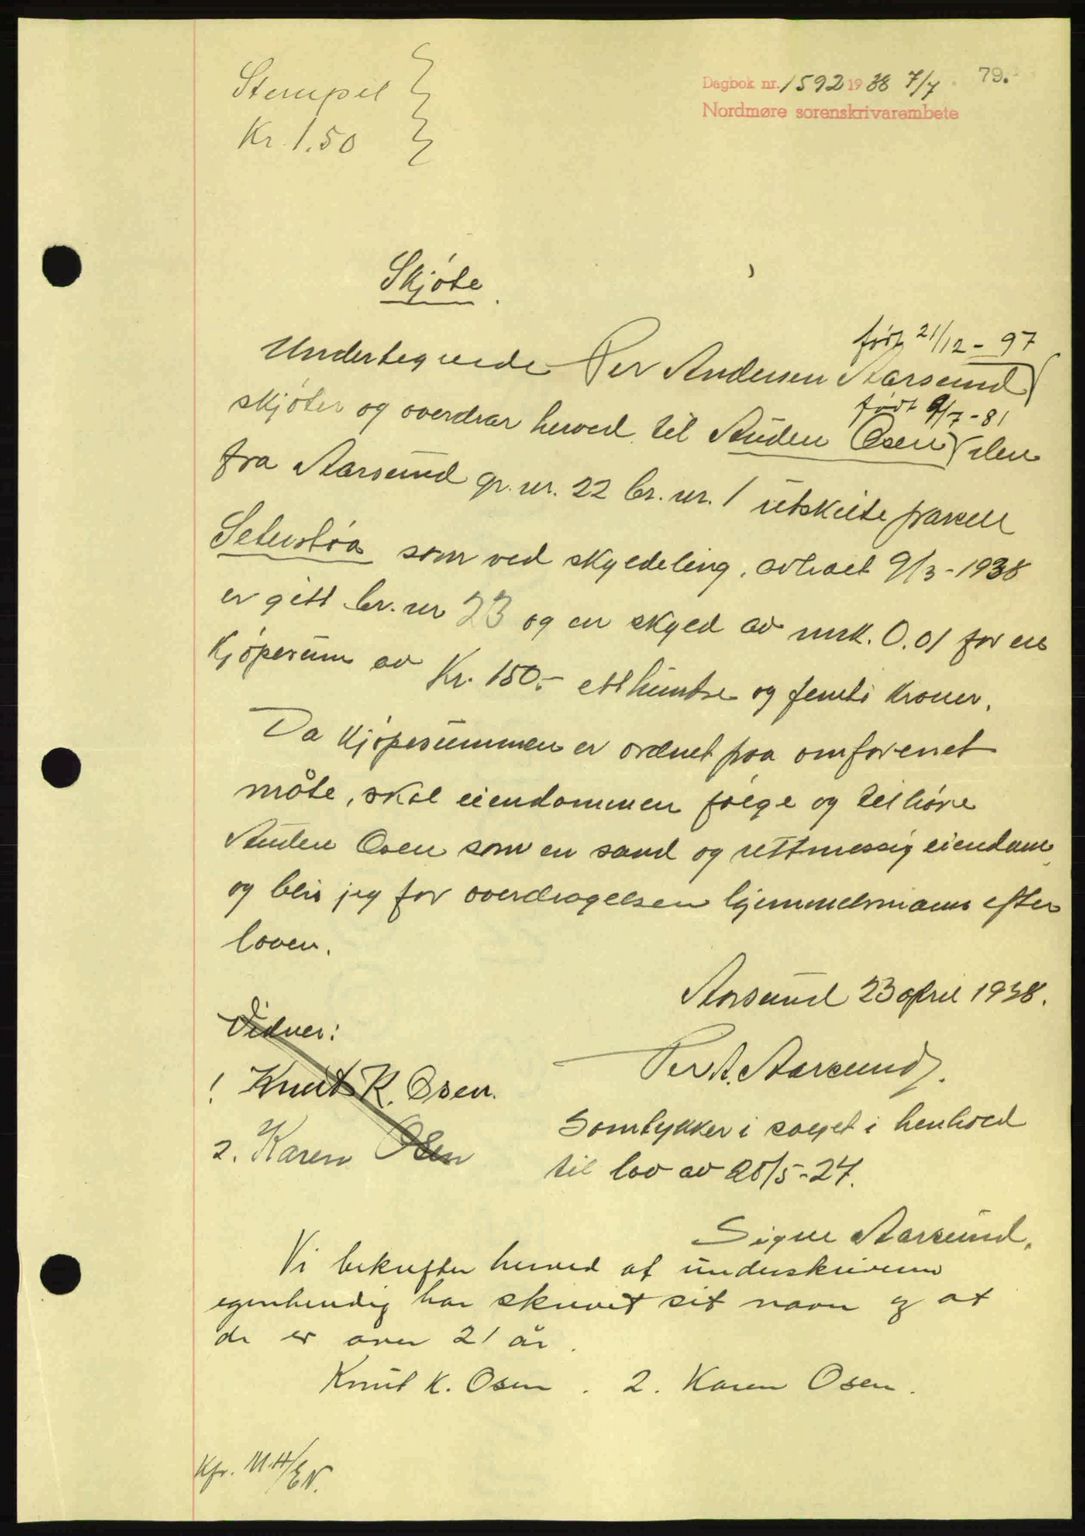 Stempil
Kr. 1.50
Dagbok nr. 1592 1938 7/7 79.
Nordmøre sorenskrivarembete
Skjøte.
født 21/12 - 97
Undertegnede Per Andersen Aarsund
født 9/7 - 81
skjøter og overdrar herved til Anders Osen den
fra Aarsund gr. nr. 22 br. nr. 1 utskilte parsell
Seterstøa som ved skyldeling, avholdt 9/3 - 1938
er gitt br. nr 23 og en skyld av mrk. 0.01 for en
kjøpesum av Kr. 150.- etthundre og femti kroner.
Da kjøpesummen er ordnet paa omforenet
måte, skal eiendommen følge og tilhøre
Anders Osen som en sand og rettmessig eiendom,
og blir jeg for overdragelsen hjemmelsmann efter
loven.
Aarsund 23 april 1938.
Vidner:
Per A. Aarsund.
1 Knut K. Osen.
2. Karen Osen
Samtykker i salget i henhold
til lov av 20/5 - 27.
Signe Aarsund.
Vi bekrefter herved at underskriverne
egenhendig har skrevet sit navn og at
de er over 21 år.
Knut K. Osen. 2. Karen Osen.
Kfr. M.H/E.N.